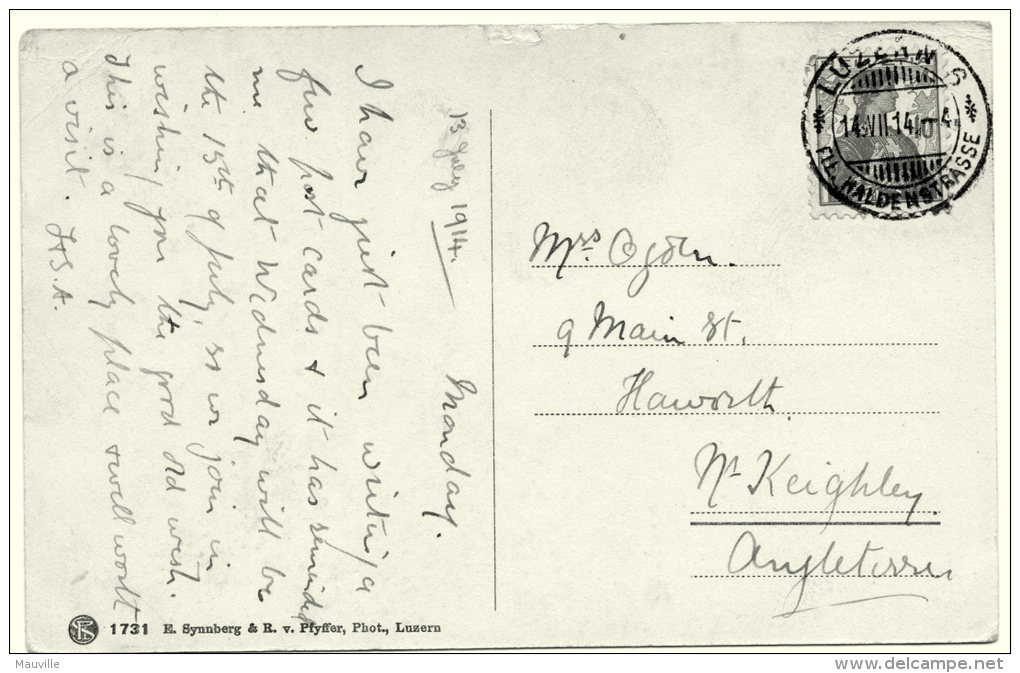 13 July 1914.
Monday.
I have just been writing a
few post cards & it has reminded
me that Wednesday will be
the 15th of July, so we join in
wishing you the good old wish.
This is a lovely place & well worth
a visit.
Mrs Ogden.
9 Main St.
Haworth.
Nr Keighley.
Angleterre
LUZERN 6
14.VII.14.-4
FIL. HALDENSTRASSE
10
1731 E. Synnberg & R. v. Pfyffer, Phot., Luzern
Mauville
http://www.delcampe.net